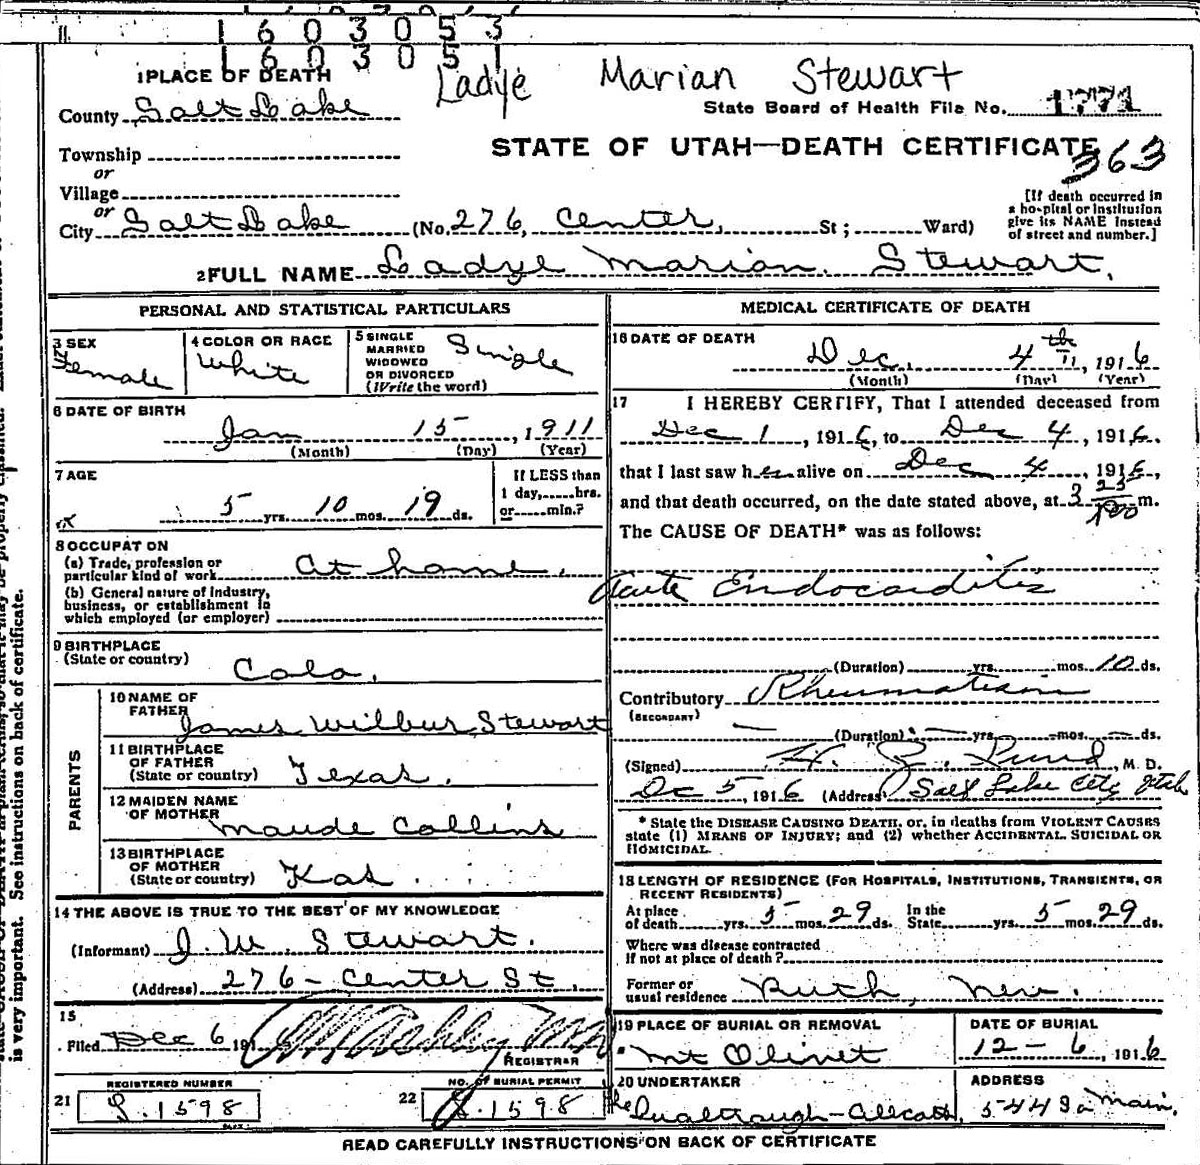 1 6 0 3 0 5 3
1 6 0 3 0 5 1
Ladye Marian Stewart
1 PLACE OF DEATH
County Salt Lake
State Board of Health File No. 1771
Township
or
STATE OF UTAH—DEATH CERTIFICATE
363
Village
or
City Salt Lake (No. 276, Center, St ; Ward)
[If death occurred in a hospital or institution give its NAME instead of street and number.]
2 FULL NAME Ladye Marion. Stewart.
PERSONAL AND STATISTICAL PARTICULARS
3 SEX Female
4 COLOR OR RACE White
5 SINGLE MARRIED WIDOWED OR DIVORCED (Write the word) Single
6 DATE OF BIRTH
Jan 15, 1911
(Month) (Day) (Year)
7 AGE
5 yrs. 10 mos. 19 ds.
If LESS than 1 day,......hrs. or......min.?
8 OCCUPATION
(a) Trade, profession or particular kind of work at home.
(b) General nature of industry, business, or establishment in which employed (or employer)
9 BIRTHPLACE
(State or country)
Colo.
PARENTS
10 NAME OF FATHER
James Wilbur Stewart
11 BIRTHPLACE OF FATHER
(State or country) Texas.
12 MAIDEN NAME OF MOTHER
Maude Collins
13 BIRTHPLACE OF MOTHER
(State or country) Kas.
14 THE ABOVE IS TRUE TO THE BEST OF MY KNOWLEDGE
(Informant) J. W. Stewart.
(Address) 276 - Center St.
15
Filed Dec 6 191
REGISTRAR
21 REGISTERED NUMBER
1598
22 NO. OF BURIAL PERMIT
1598
MEDICAL CERTIFICATE OF DEATH
16 DATE OF DEATH
Dec. 4th, 1916
(Month) (Day) (Year)
17 I HEREBY CERTIFY, That I attended deceased from
Dec 1, 1916, to Dec 4, 1916.
that I last saw her alive on Dec 4, 1916,
and that death occurred, on the date stated above, at 3 m.
The CAUSE OF DEATH* was as follows:
Acute Endocarditis
(Duration) yrs. mos. 10 ds.
Contributory Rheumatism
(SECONDARY)
(Duration) — yrs. — mos. — ds.
(Signed) M. D.
Dec 5, 1916 (Address) Salt Lake City Utah
* State the DISEASE CAUSING DEATH, or, in deaths from VIOLENT CAUSES
state (1) MEANS OF INJURY; and (2) whether ACCIDENTAL, SUICIDAL OR
HOMICIDAL.
18 LENGTH OF RESIDENCE (FOR HOSPITALS, INSTITUTIONS, TRANSIENTS, OR
RECENT RESIDENTS)
At place of death yrs. 5 mos. 29 ds. In the State yrs. 5 mos. 29 ds.
Where was disease contracted
if not at place of death?
Former or
usual residence Ruth, Nev.
19 PLACE OF BURIAL OR REMOVAL
Mt Olivet
DATE OF BURIAL
12 - 6, 1916
20 UNDERTAKER
ADDRESS
Main.
READ CAREFULLY INSTRUCTIONS ON BACK OF CERTIFICATE
is very important. See instructions on back of certificate.